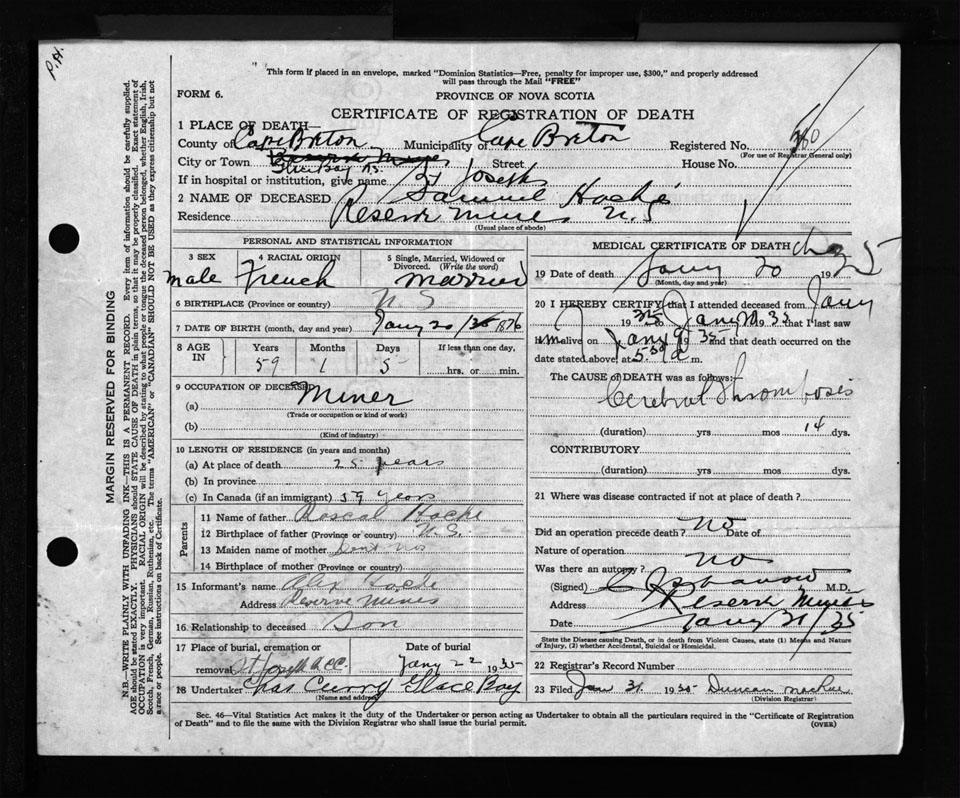 P.H.
This form if placed in an envelope, marked "Dominion Statistics—Free, penalty for improper use, $300," and properly addressed
will pass through the Mail "FREE"
FORM 6.
PROVINCE OF NOVA SCOTIA
CERTIFICATE OF REGISTRATION OF DEATH
1 PLACE OF DEATH—
County of Cape Breton Municipality of Cape Breton Registered No. 380
(For use of Registrar General only)
City or Town Reserve Mines Street House No.
Glace Bay NS.
If in hospital or institution, give name St Josephs
2 NAME OF DECEASED Samuel Hache
Residence Reserve Mines N.S
(Usual place of abode)
PERSONAL AND STATISTICAL INFORMATION
3 SEX 4 RACIAL ORIGIN 5 Single, Married, Widowed or Divorced. (Write the word)
male French Married
6 BIRTHPLACE (Province or country) N S
7 DATE OF BIRTH (month, day and year) Jany 20/ 1876
8 AGE IN Years Months Days If less than one day,
59 1 5 hrs. or min.
9 OCCUPATION OF DECEASED Miner
(a)
(Trade or occupation or kind of work)
(b)
(Kind of industry)
10 LENGTH OF RESIDENCE (in years and months)
(a) At place of death 25 years
(b) In province
(c) In Canada (if an immigrant) 59 years
Parents
11 Name of father Hache
12 Birthplace of father (Province or country) N.S.
13 Maiden name of mother Dont
14 Birthplace of mother (Province or country)
15 Informant's name Alix Hache
Address Reserve Mines
16 Relationship to deceased Son
17 Place of burial, cremation or removal St Joseph Date of burial Jany 22 1935
18 Undertaker Chas Curry Glace Bay
(Name and address)
MEDICAL CERTIFICATE OF DEATH
19 Date of death Jany 20 1935
(Month, day and year)
20 I HEREBY CERTIFY that I attended deceased from Jany
19 to Jany 1935 that I last saw
H im alive on Jany 19 35 and that death occurred on the
date stated above, at 5.30 a m.
The CAUSE of DEATH was as follows:
Cerebral Thrombosis
(duration) yrs mos 14 dys.
CONTRIBUTORY
(duration) yrs mos dys.
21 Where was disease contracted if not at place of death?
Did an operation precede death? no Date of
Nature of operation
Was there an autopsy? no
(Signed) M.D.
Address Reserve Mines
Date Jany 21/35
State the Disease causing Death, or in death from Violent Causes, state (1) Means and Nature
of Injury, (2) whether Accidental, Suicidal or Homicidal.
22 Registrar's Record Number
23 Filed Jan 31 1935 Duncan
(Division Registrar)
Sec. 46—Vital Statistics Act makes it the duty of the Undertaker or person acting as Undertaker to obtain all the particulars required in the "Certificate of Registration
of Death" and to file the same with the Division Registrar who shall issue the burial permit.
(OVER)
MARGIN RESERVED FOR BINDING
N.B.—WRITE PLAINLY WITH UNFADING INK—THIS IS A PERMANENT RECORD. Every item of information should be carefully supplied.
AGE should be stated EXACTLY. PHYSICIANS should STATE CAUSE OF DEATH in plain terms, so that it may be properly classified. Exact statement of
OCCUPATION is very important. RACIAL ORIGIN will be described by stating to what people or tongue the deceased person belonged, whether English, Irish,
Scotch, French, German, Russian, Ruthenian, etc. The terms "AMERICAN" or "CANADIAN" SHOULD NOT BE USED as they express citizenship but not
a race or people. See instructions on back of Certificate.